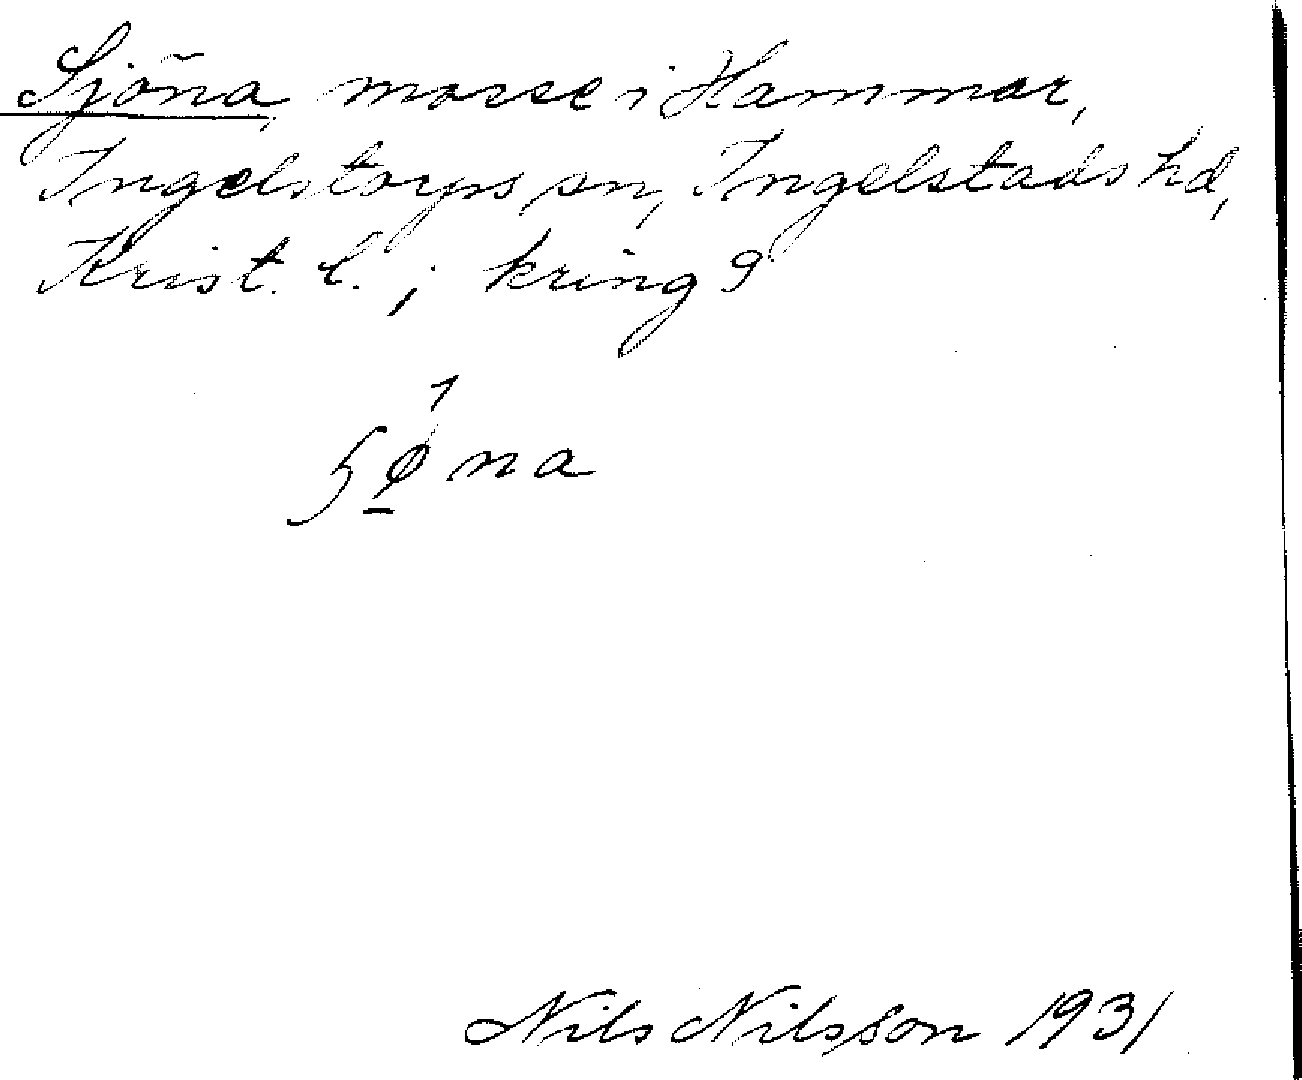 Sjöna, mosse i Hammar,
Ingelstorps sn, Ingelstads hd,
Krist. l.; kring 9
na
Nils Nilsson 1931